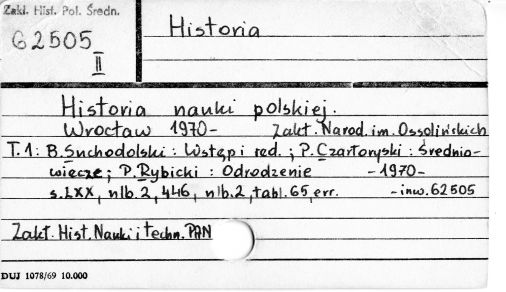 Zakł. Hist. Pol. Średn.
62505
II
Historia
Historia nauki polskiej.
Wrocław 1970- Zakł. Narod. im. Ossolińskich
T.1: B. Suchodolski: Wstęp i red.; P. Czartoryski: Średnio-
wiecze; P. Rybicki: Odrodzenie -1970-
s. LXX, nlb.2, 446, nlb.2, tabl. 65, err. - inw. 62505
Zakł. Hist. Nauki i Techn. PAN
DUJ 1078/69 10.000